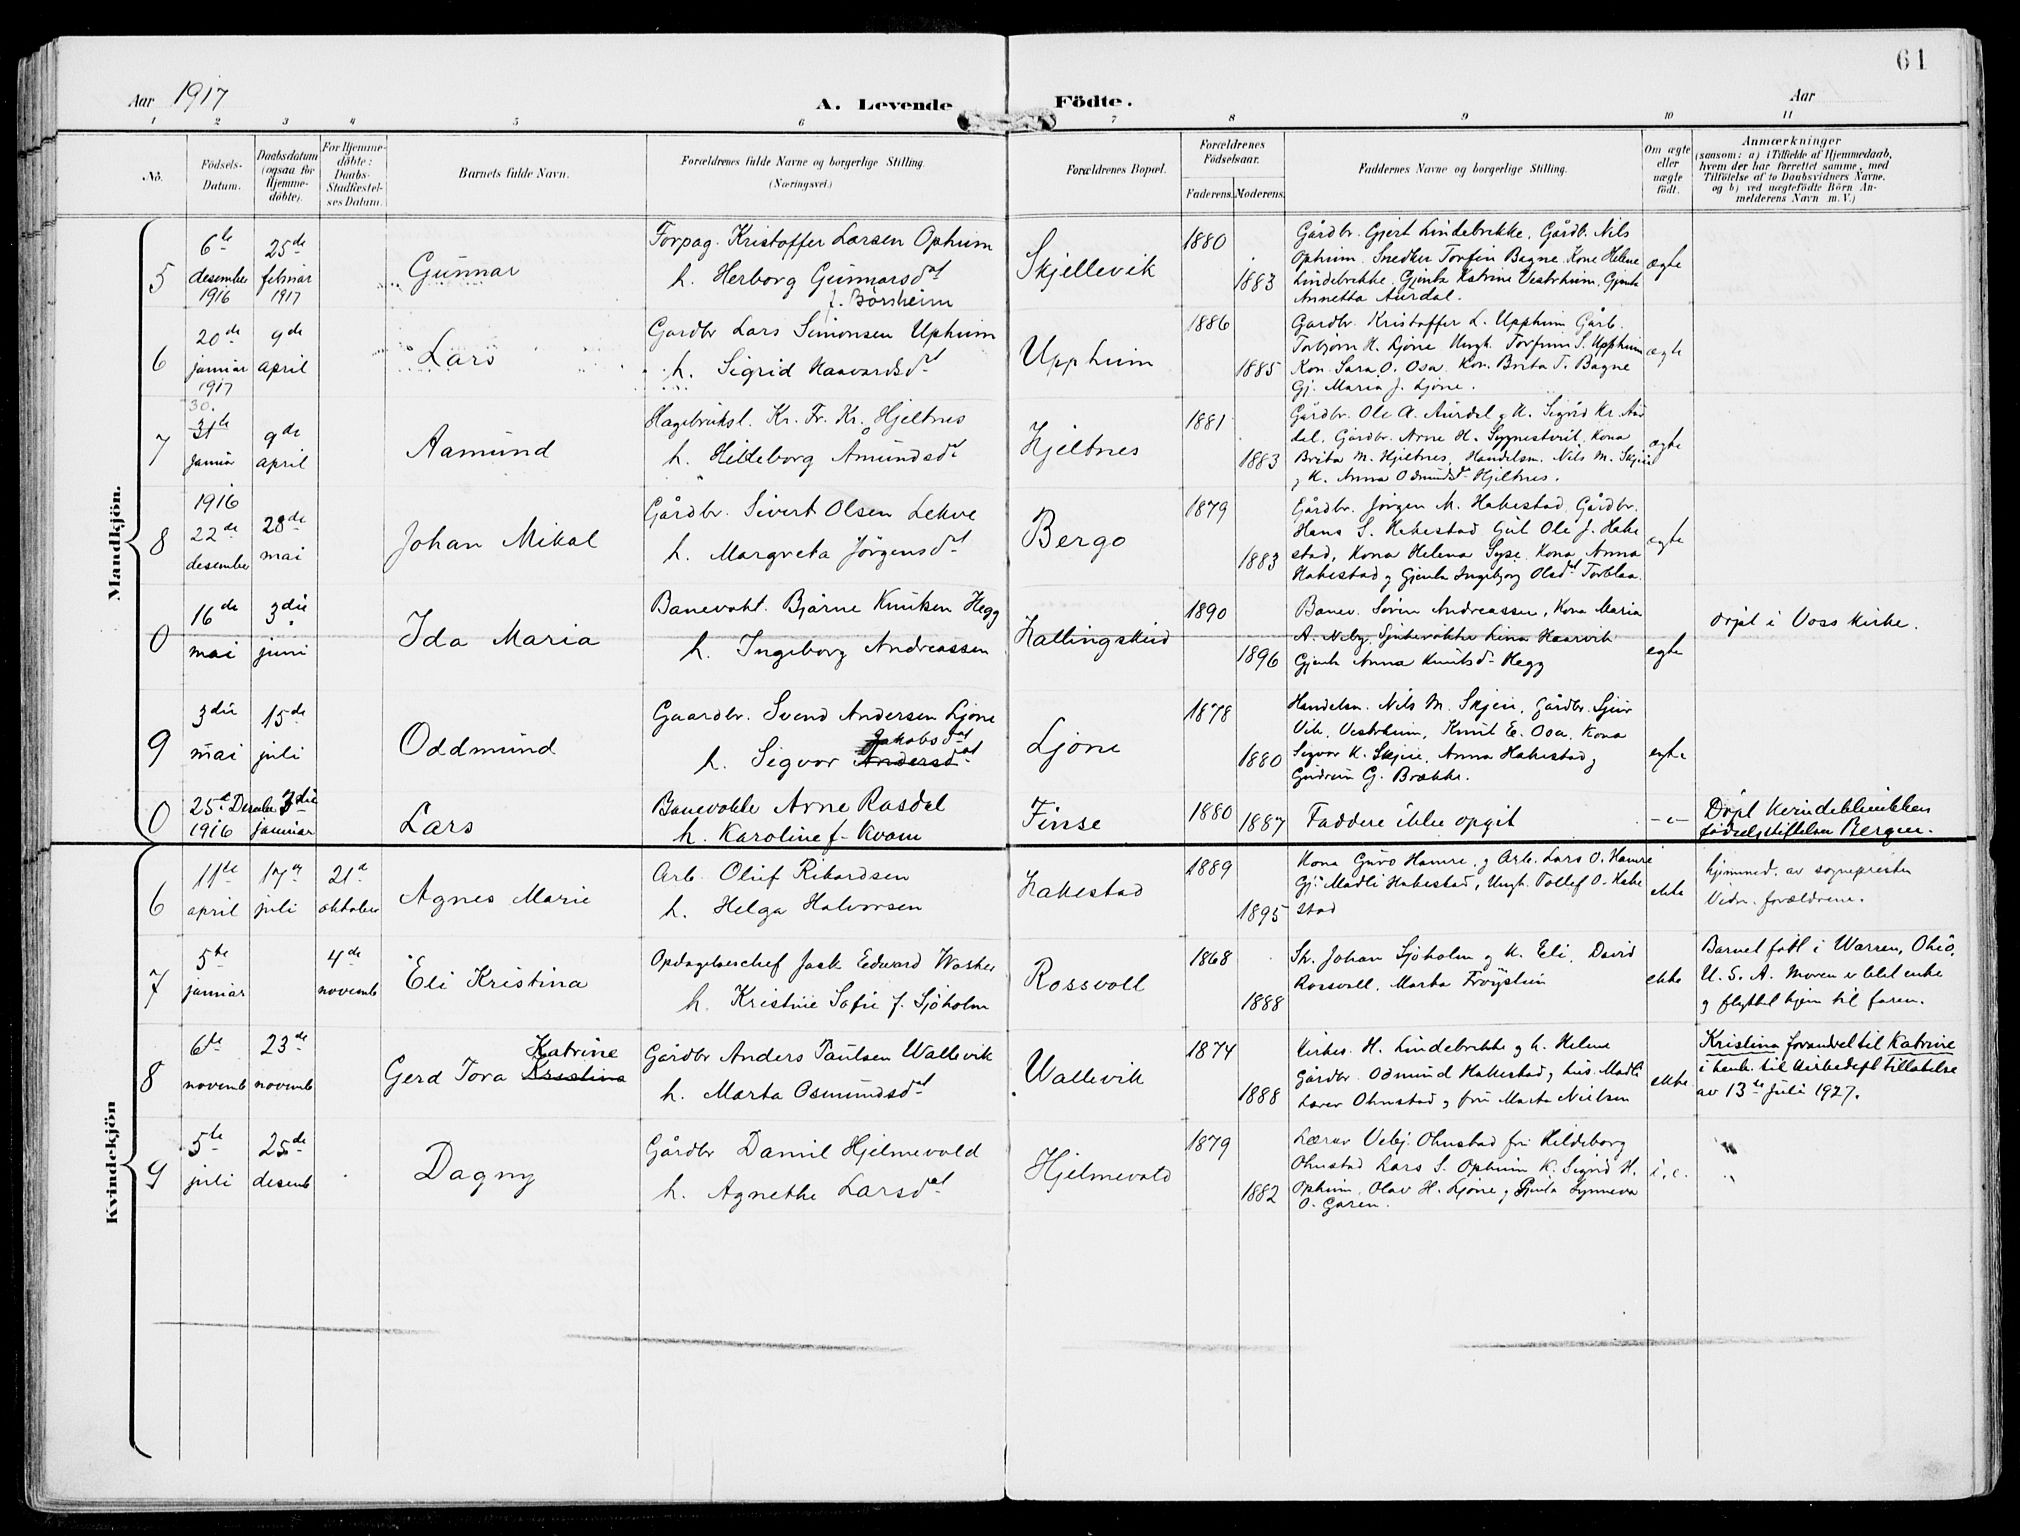 61
Aar 1917
A. Levende
Födte.
Aar
1 2 3 4 5 6 7 8 9 10 11
No.
Födsels-Datum.
Daabsdatum (ogsaa for Hjemme-döbte).
For Hjemme-döbte: Daabs-Stadfæstel-ses Datum.
Barnets fulde Navn.
Forældrenes fulde Navne og borgerlige Stilling.
(Næringsvei.)
Forældrenes Bopæl.
Forældrenes Födselsaar.
Faderens. Moderens.
Faddernes Navne og borgerlige Stilling.
Om ægte eller uægte födt.
Anmærkninger
(saasom: a) i Tilfælde af Hjemmedaab,
hvem der har forrettet samme, med
Tilföielse af to Daabsvidners Navne,
og b) ved uægtefödte Börn An-
melderens Navn m. V.)
Mandkjön.
5
6te desember 1916
25de februar 1917
Gunnar
Forpag. Kristoffer Larsen Ophuim
h. Herborg Gunnarsdat
f. Börsheim
Skjellevik
1880
1883
Gårdbr. Gjert Lindebrekke, Gårdb. Nils
Ophuim. Snedker Torfin Bagne. Kone Helene
Lindebrekke. Gjenta Katrine Vestrheim, Gjenta
Annetta Aurdal.
ægte
6
20de januar 1917
9de april
Lars
Gardbr Lars Simonsen Upheim
h. Sigrid Haavardsdt
Uppheim
1886
1885
Gardbr. Kristoffer L. Uppheim Gårb.
Torbjørn H. Ljöne Ungk. Torfinn S. Uppheim
Kon. Sara O. Osa. Kon. Brita T. Bagne
Gj. Maria J. Ljöne.
ægte
7
30. 31te januar
9de april
Aamund
Hagebruksl. Kr. Fr. Kr. Hjeltnes
h. Hildeborg Åmundsdt
Hjeltnes
1881
1883
Gårdbr. Ole A. Aurdal g K. Sigrid Kr. Aur
dal. Gårdbr. Arne H. Sygnestveit, Kona
Brita M. Hjeltnes, Handelsm. Nils M. Skjeie
g K. Anna Odmundsd. Hjeltnes.
ægte
8
1916
22de desember
28de mai
Johan Mikal
Gårdbr. Sivert Olsen Lekve
h. Margreta Jörgensdt
Bergo
1879
1883
Gårdbr. Jörgen M. Hakestad, Gårdbr.
Hans S. Hakestad Gut Ole J. Hake
stad, Kona Helena Syse, Kona Anna
Hakestad g Gjenta Ingebjorg Olsdt Torblaa.
ægte
0
16de mai
3die juni
Ida Maria
Banevokt. Bjarne Knutsen Hegg
h. Ingeborg Andreassen
Hallingskeid
1890
1896
Banev. Sörin Andreassen, Kona Maria
A. Neby, Lina Haarvik
Gjenta Anna Knutsd. Hegg
egte
döpt i Voss kirke.
9
3die mai
15de juli
Oddmund
Gaardbr. Svend Andersen Ljöne
h. Sigvor Jakobsdt Andersdat
Ljöne
1878
1880
Handelsm. Nils M. Skjeie, Gårdbr. Sjur
Vik, Vestrheim, Knut E. Osa, Kona
Sigvor K. Skjeie, Anna Hakestad g
Gudrun G. Brække.
egte
0
25de Desember 1916
3die januar
Lars
Banevokte Arne Rasdal
h. Karoline f. Kvam
Finse
1880
1887
Faddere ikke opgit
-"-
Döpt Kvindeklinikken
födselstiftelsen Bergen.
Kvindekjön
6
11te april
17de juli
21de oktober
Agnes Marie
Arb. Oluf Rikardsen
h. Helga Halvorsen
Hakestad
1889
1895
Kona Guro Hamre, g Arb. Lars O. Hamre
Gj. Madli Hakestad, Ungk. Tollef O. Hake
stad
ekte
hjemmed. av sognepresten
Vidn. forældrene.
7
5te januar
4de novemb
Eli Kristina
Opdagelseschef Jack Edward Washer
h. Kristine Sofie f. Sjöholm
Rossvoll
1868
1888
Sk. Johan Sjöholm g K. Eli, David
Rossvoll, Marta Fröystein
ekte
Barnet födt i Warren, Ohio,
U. S. A. Moren er blit enke
g flyttet hjem til faren.
8
6te novemb
23de novemb
Gerd Tora Kristina Katrine
Gårdbr Anders Paulsen Wallevik
h. Marta Osmundsdt
Wallevik
1874
1888
Kirkes. H. Lindebrekke g h. Helene
Gårdbr. Odmund Hakestad g hus. Madli
Lærer Ohnstad g fru Marta Nielsen
ekte
Kristina forandret til Katrine
i henh. til Airbedept tillatelse
av 13de Juli 1927.
9
5te juli
25de desemb
Dagny
Gårdbr Daniel Hjelmevold
h. Agnethe Larsdt
Hjelmevold
1879
1882
Lærer Vebj. Ohnstad fru Hildeborg
Ohnstad Lars S. Ophuim K. Sigrid H.
Ophuim, Olav H. Ljöne g Gjenta Synneva
O. Garen.